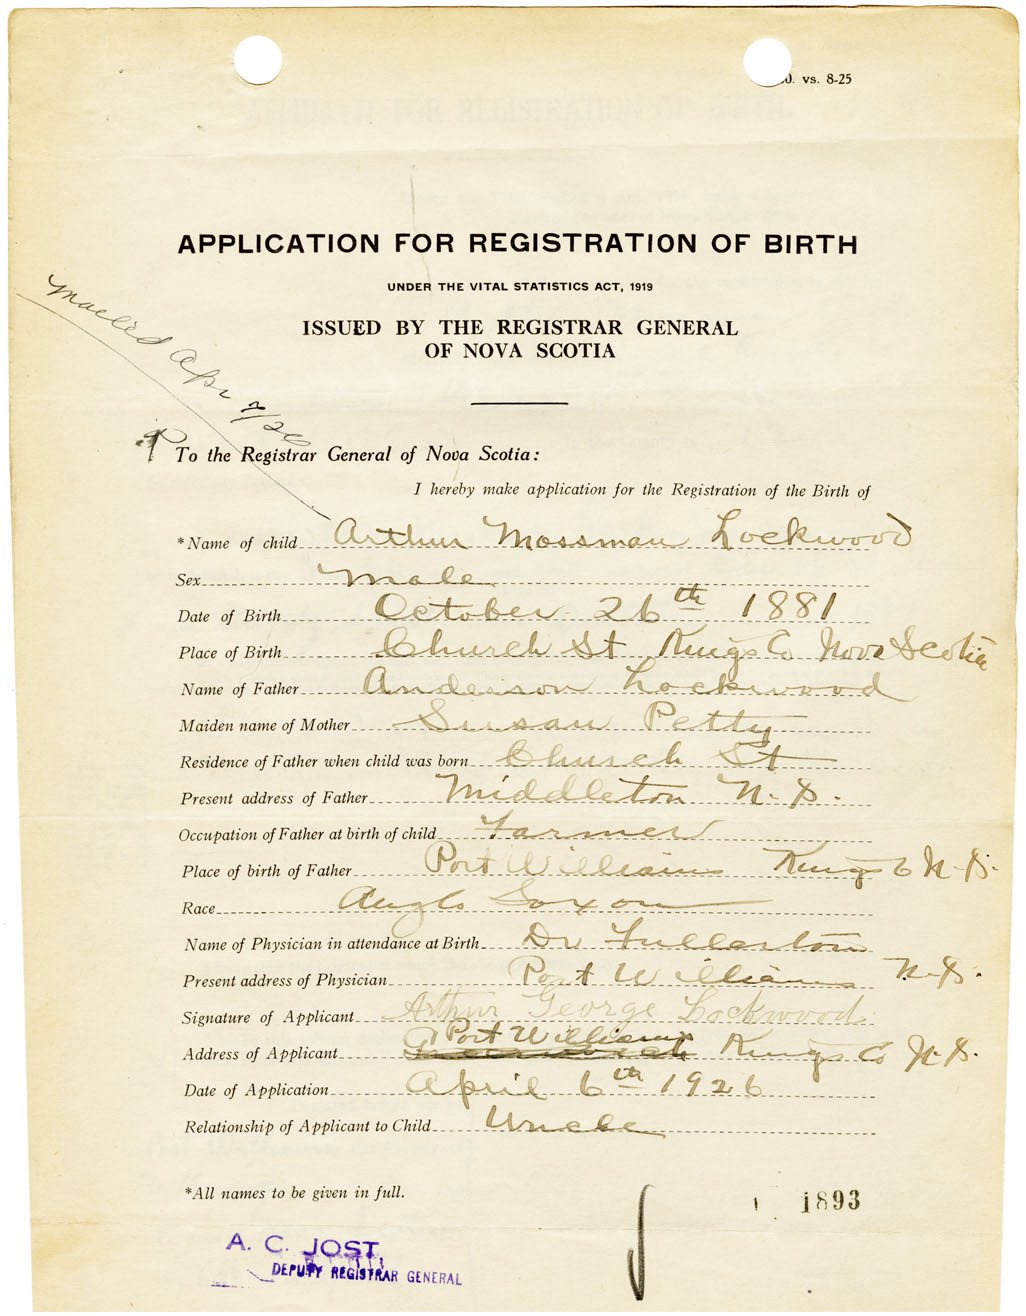 0. vs. 8-25
APPLICATION FOR REGISTRATION OF BIRTH
UNDER THE VITAL STATISTICS ACT, 1919
ISSUED BY THE REGISTRAR GENERAL
OF NOVA SCOTIA
Mailed Apr 7/26
To the Registrar General of Nova Scotia:
I hereby make application for the Registration of the Birth of
*Name of child Arthur Mossman Lockwood
Sex Male
Date of Birth October 26th 1881
Place of Birth Church St Kings Co Nova Scotia
Name of Father Anderson Lockwood
Maiden name of Mother Susan Petty
Residence of Father when child was born Church St
Present address of Father Middleton N.S.
Occupation of Father at birth of child Farmer
Place of birth of Father Port Williams Kings Co N.S.
Race Anglo Saxon
Name of Physician in attendance at Birth Dr Fullerton
Present address of Physician Port Williams N.S.
Signature of Applicant Arthur George Lockwood
Address of Applicant Port Williams Kings Co N.S.
Date of Application April 6th 1926
Relationship of Applicant to Child Uncle
*All names to be given in full.
1893
A. C. JOST,
DEPUTY REGISTRAR GENERAL